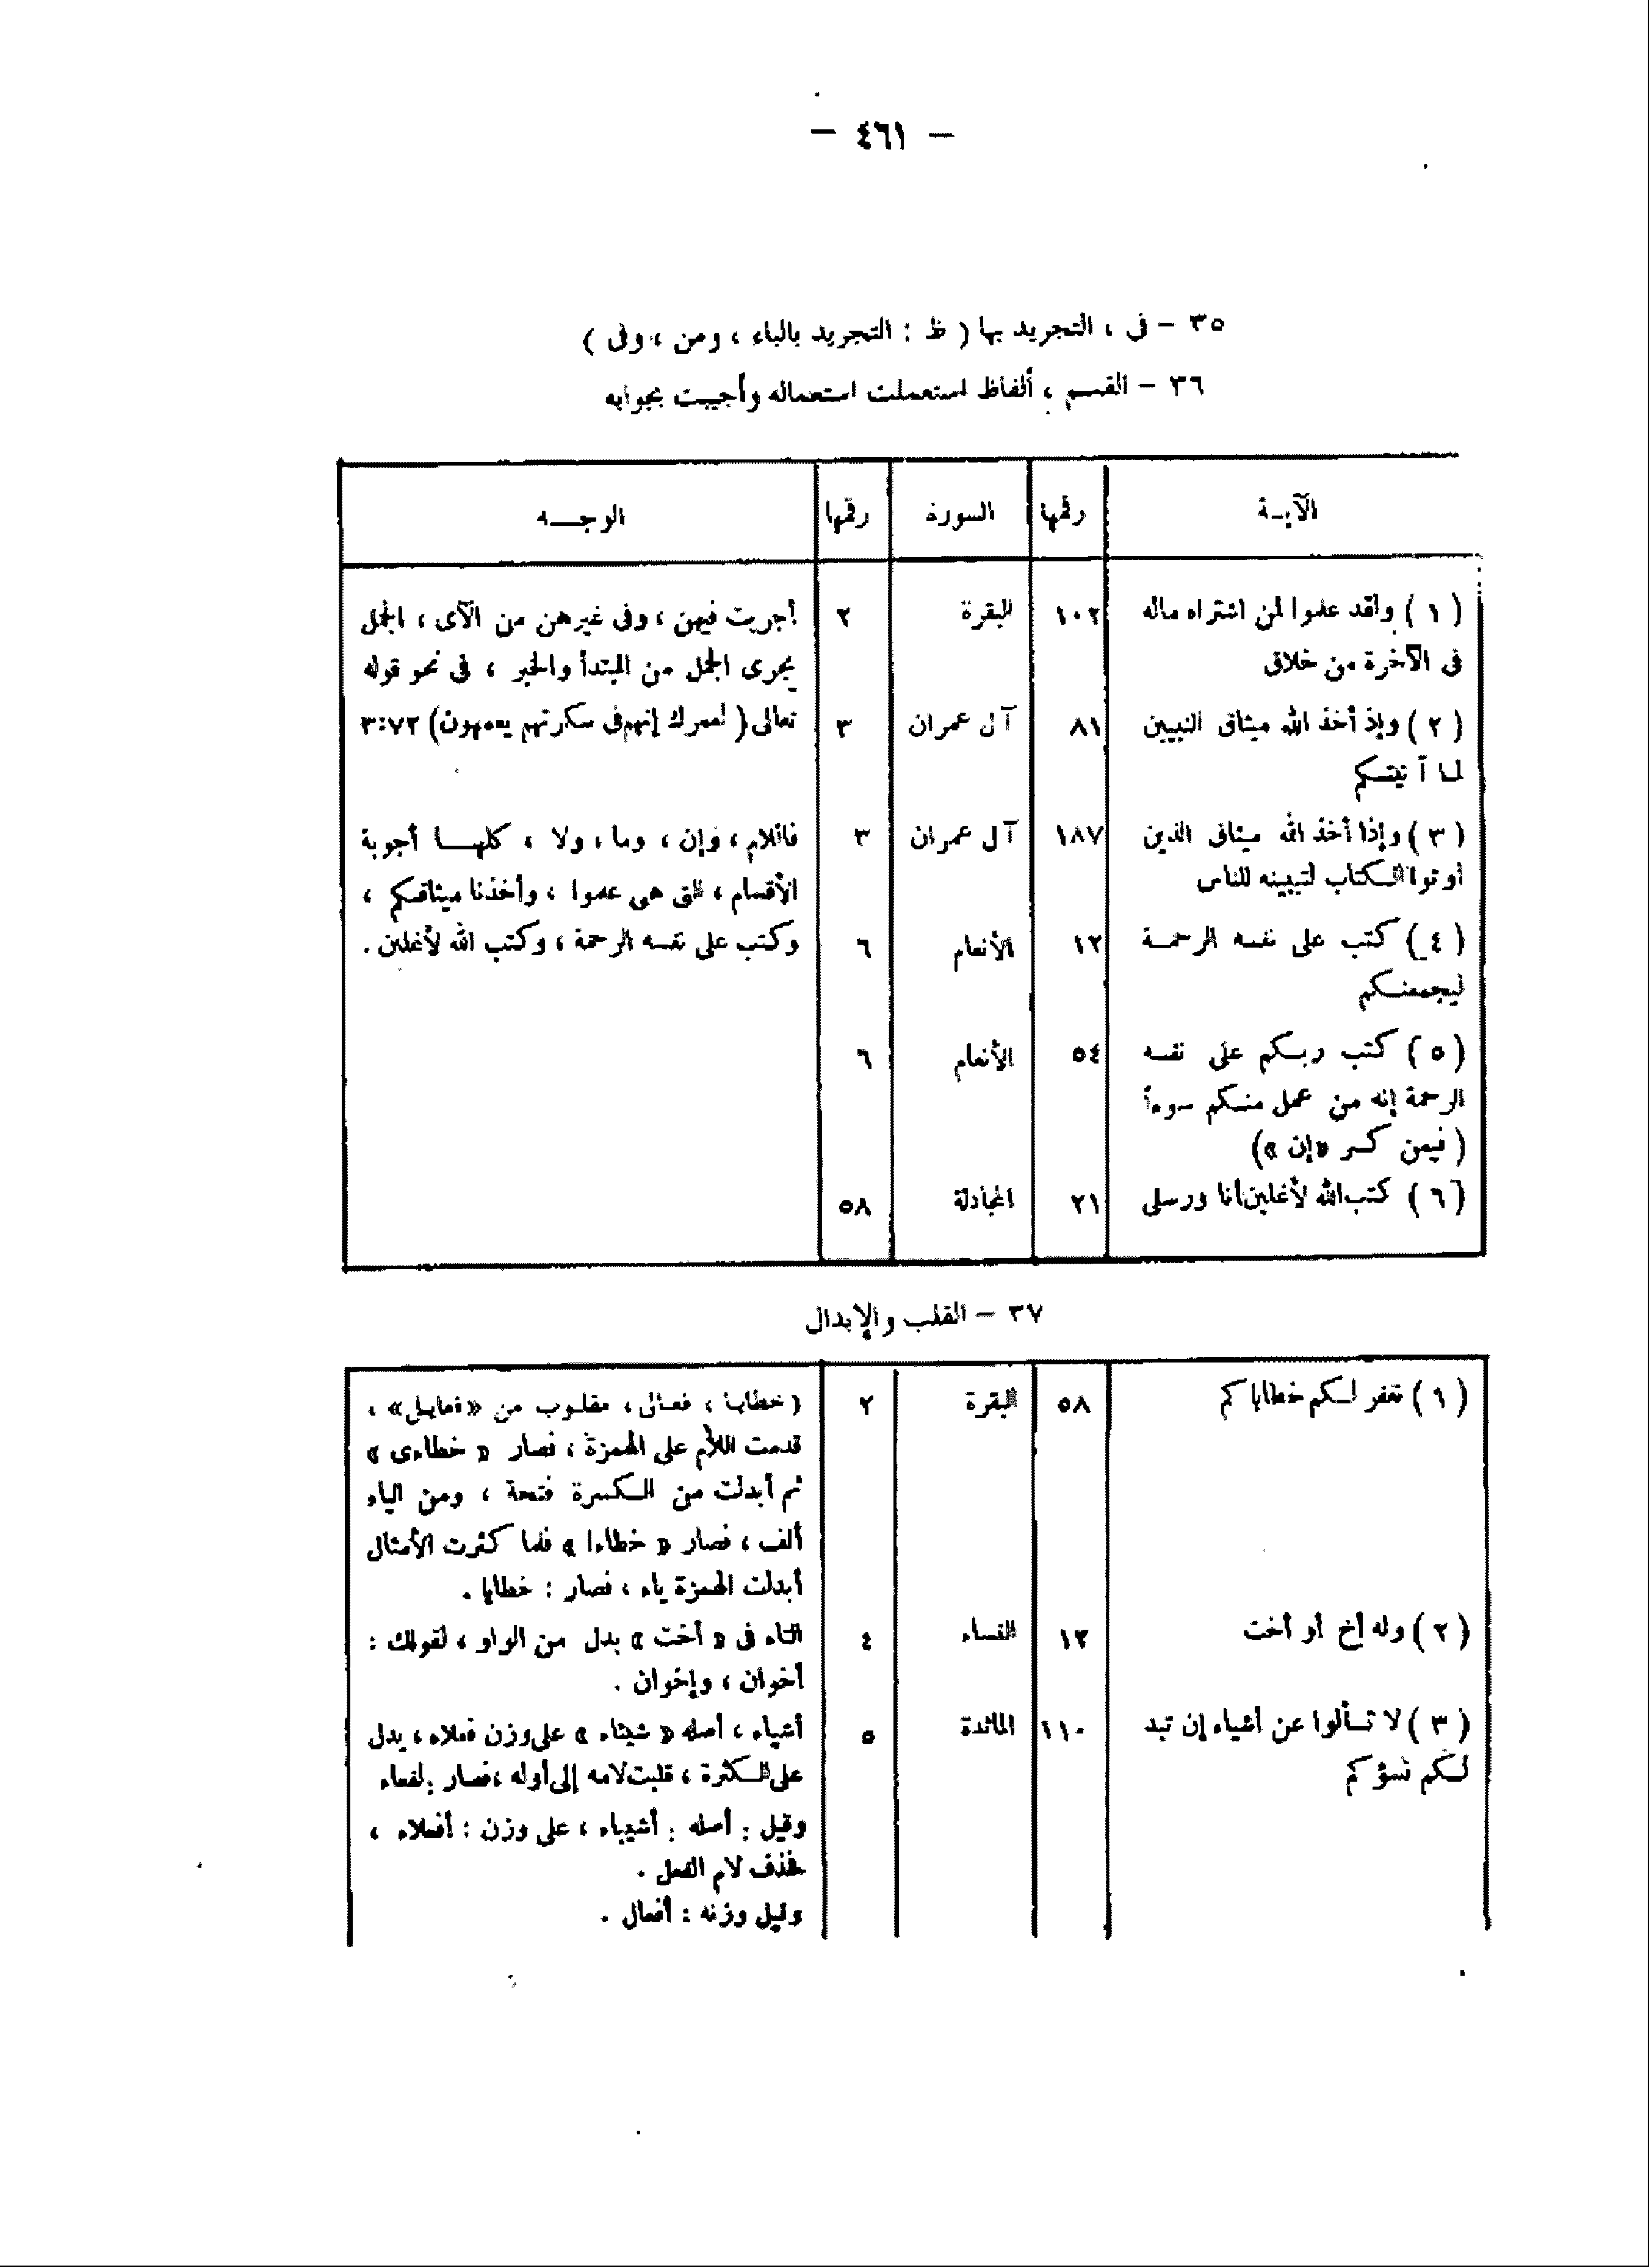 — ٤٦١ —
٣٥ — فى ، التجريد بها ( ظ : التجريد بالباء ، ومن ، وفى )
٣٦ — القسم ، ألفاظ استعملت استعماله وأجيبت بجوابه
الآيـة رقمها السورة رقمها الوجـــه
( ١ ) ولقد علموا لمن اشتراه ماله ١٠٢ البقرة ٢ أجريت فيهن ، وفى غيرهن من الآى ، الجمل
فى الآخرة من خلاق يجرى الجمل من المبتدأ والخبر ، فى نحو قوله
( ٢ ) وإذ أخذ الله ميثاق النبيين ٨١ آل عمران ٣ تعالى ( لعمرك إنهم فى سكرتهم يعمهون ) ٣:٧٢
لما آتيتـكم
( ٣ ) وإذا أخذ الله ميثاق الذين ١٨٧ آل عمران ٣ فاللام ، وإن ، وما ، ولا ، كلهــا أجوبة
أوتوا الـكتاب لتبيننه للناس الأقسام ، التى هى علموا ، وأخذنا ميثاقـكم ،
( ٤ ) كتب على نفسه الرحمـة ١٢ الأنعام ٦ وكتب على نفسه الرحمة ، وكتب الله لأغلبن .
ليجمعنـكم
( ٥ ) كتب ربـكم على نفسه ٥٤ الأنعام ٦
الرحمة إنه من عمل منـكم سوءاً
( فيمن كسر «إن» )
( ٦ ) كتب الله لأغلبن أنا ورسلى ٢١ المجادلة ٥٨
٣٧ — القلب والإبدال
( ١ ) نغفر لـكم خطاياكم ٥٨ البقرة ٢ ( خطايا ، فعالى ، مقلوب من «فعايل» ،
قدمت اللام على الهمزة ، فصار « خطاءى »
ثم أبدلت من الـكسرة فتحة ، ومن الياء
ألف ، فصار « خطاءا » فلما كثرت الأمثال
أبدلت الهمزة ياء ، فصار : خطايا .
( ٢ ) وله أخ أو أخت ١٣ النساء ٤ التاء فى « أخت » بدل من الواو ، لقولك :
أخوان ، وإخوان .
( ٣ ) لا تسألوا عن أشياء إن تبد ١١٠ المائدة ٥ أشياء ، أصله « شيئاء » على وزن فعلاء ، يدل
لـكم تسؤكم على الـكثرة ، قلبت لامه إلى أوله ، فصار : لفعاء
وقيل : أصله : أشيياء ، على وزن : أفعلاء ،
فحذف لام الفعل .
وقيل وزنه : أفعال .